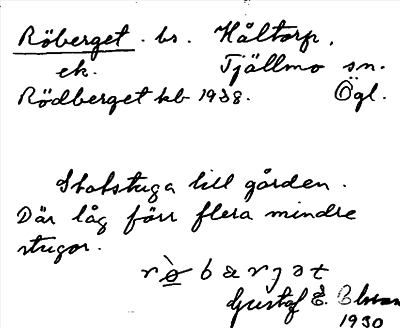 Röberget . bs. Håltorp.
ek. Tjällmo sn.
Rödberget kb 1938. Ögl.
Statstuga till gården.
Där låg förr flera mindre
stugor.
Gustaf E.
1930